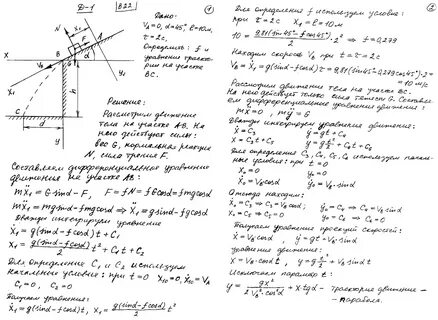 Д-1
В22
Дано:
V_A=0, α=45°, l=10м,
τ=2с,
Определить: f и
уравнение траектории
на участке
ВС.
Решение:
Рассмотрим движение
тела на участке АВ. На
него действует силы:
вес G, нормальная реакция
N, сила трения F.
Составляем дифференциальное уравнение
движения на участке АВ:
mẍ₁ = G·sinα - F, F = fN = fGcosα = fmgcosα
mẍ₁ = mgsinα - fmgcosα ⇒ ẍ₁ = gsinα - fgcosα
Дважды интегрируем уравнение
ẋ₁ = g(sinα - fcosα)t + C₁
x₁ = g(sinα - fcosα)/2 t² + C₁t + C₂
Для определения C₁ и C₂ используем
начальные условия: при t=0 x₁₀=0, ẋ₁₀=V_A
C₁=0, C₂=0
Получаем уравнения:
ẋ₁ = g(sinα - fcosα)t, x₁ = g(sinα - fcosα)/2 t²
1
Для определения f используем условие:
при t=τ=2с x₁=l=10м
10 = 9,81(sin45° - fcos45°)/2 · 2² ⇒ f=0,279
Находим скорость V_B при t=τ=2с
V_B = ẋ₁ = g(sinα - fcosα)τ = 9,81(sin45° - 0,279cos45°)·2 =
= 10 м/с
Рассмотрим движение тела на участке ВС.
На него действует только сила тяжести G. Составляем
дифференциальные уравнения движения:
mẍ = 0, mÿ = G
Дважды интегрируем уравнения движения:
ẋ = C₃ ẏ = gt + C₄
x = C₃t + C₅ y = gt²/2 + C₄t + C₆
Для определения C₃, C₄, C₅, C₆ используем начальные
условия: при t=0
x₀ = 0 y₀ = 0
ẋ₀ = V_B cosα ẏ₀ = V_B sinα
Отсюда находим:
ẋ₀ = C₃ ⇒ C₃ = V_B cosα; ẏ₀ = C₄ ⇒ C₄ = V_B sinα
x₀ = C₅ ⇒ C₅ = 0 y₀ = C₆ ⇒ C₆ = 0
Получаем уравнения проекций скоростей:
ẋ = V_B cosα, ẏ = gt + V_B·sinα
уравнения движения:
x = V_B·cosα·t, y = gt²/2 + V_B·sinα·t
Исключаем параметр t:
y = gx²/2V_B²·cos²α + x·tgα — траектория движения —
— парабола.